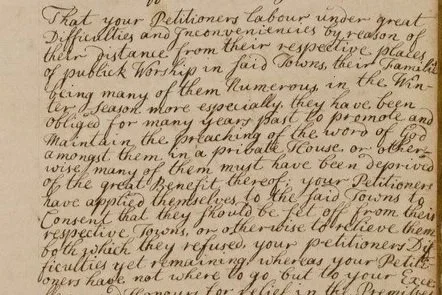 That your Petitioners labour under great
Difficulties and Inconveniencies by reason of
their distance from their respective places
of publick Worship in said Towns, their Famili
being many of them Numerous, in the Win-
ter Season more especially, they have been
obliged for many years past to promote and
Maintain the preaching of the word of God
amongst them in a private House, or other-
wise many of them must have been deprived
of the great Benefit thereof, your Petitioners
have applied themselves to the said Towns to
Consent that they should be set off from their
respective Towns, or otherwise to relieve them
both which they refused, your petitioners Dif
ficulties yet remaining, whereas your Petiti
oners have not where to go, but to your Exce
Honours for relief in the Premises